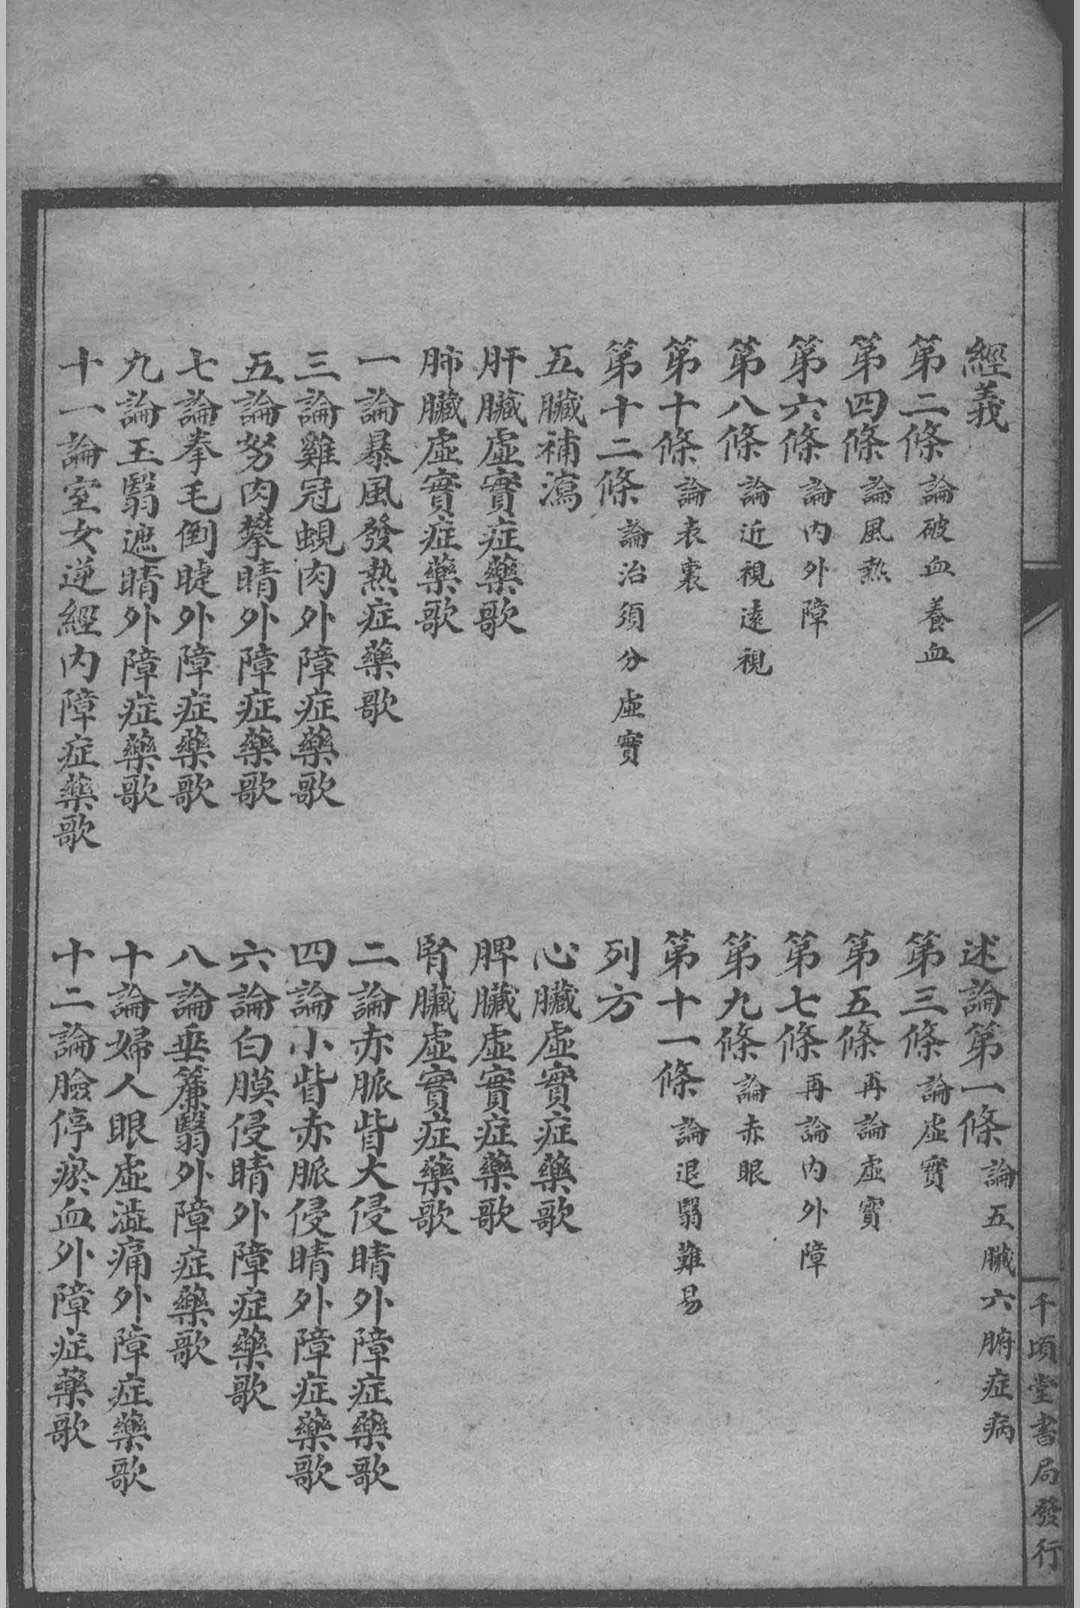 經義
述論第一條 論五臟六腑症病
第二條 論破血養血
第三條 論虛實
第四條 論風熱
第五條 再論虛實
第六條 論內外障
第七條 再論內外障
第八條 論近視遠視
第九條 論赤眼
第十條 論表裏
第十一條 論退翳難易
第十二條 論治須分虛實
列方
五臟補瀉
心臟虛實症藥歌
肝臟虛實症藥歌
脾臟虛實症藥歌
肺臟虛實症藥歌
腎臟虛實症藥歌
一論暴風發熱症藥歌
二論赤脈眥大侵睛外障症藥歌
三論雞冠蜆肉外障症藥歌
四論小眥赤脈侵睛外障症藥歌
五論努肉攀睛外障症藥歌
六論白膜侵睛外障症藥歌
七論拳毛倒睫外障症藥歌
八論垂簾翳外障症藥歌
九論玉翳遮睛外障症藥歌
十論婦人眼虛澁痛外障症藥歌
十一論室女逆經內障症藥歌
十二論臉停瘀血外障症藥歌
千頃堂書局發行